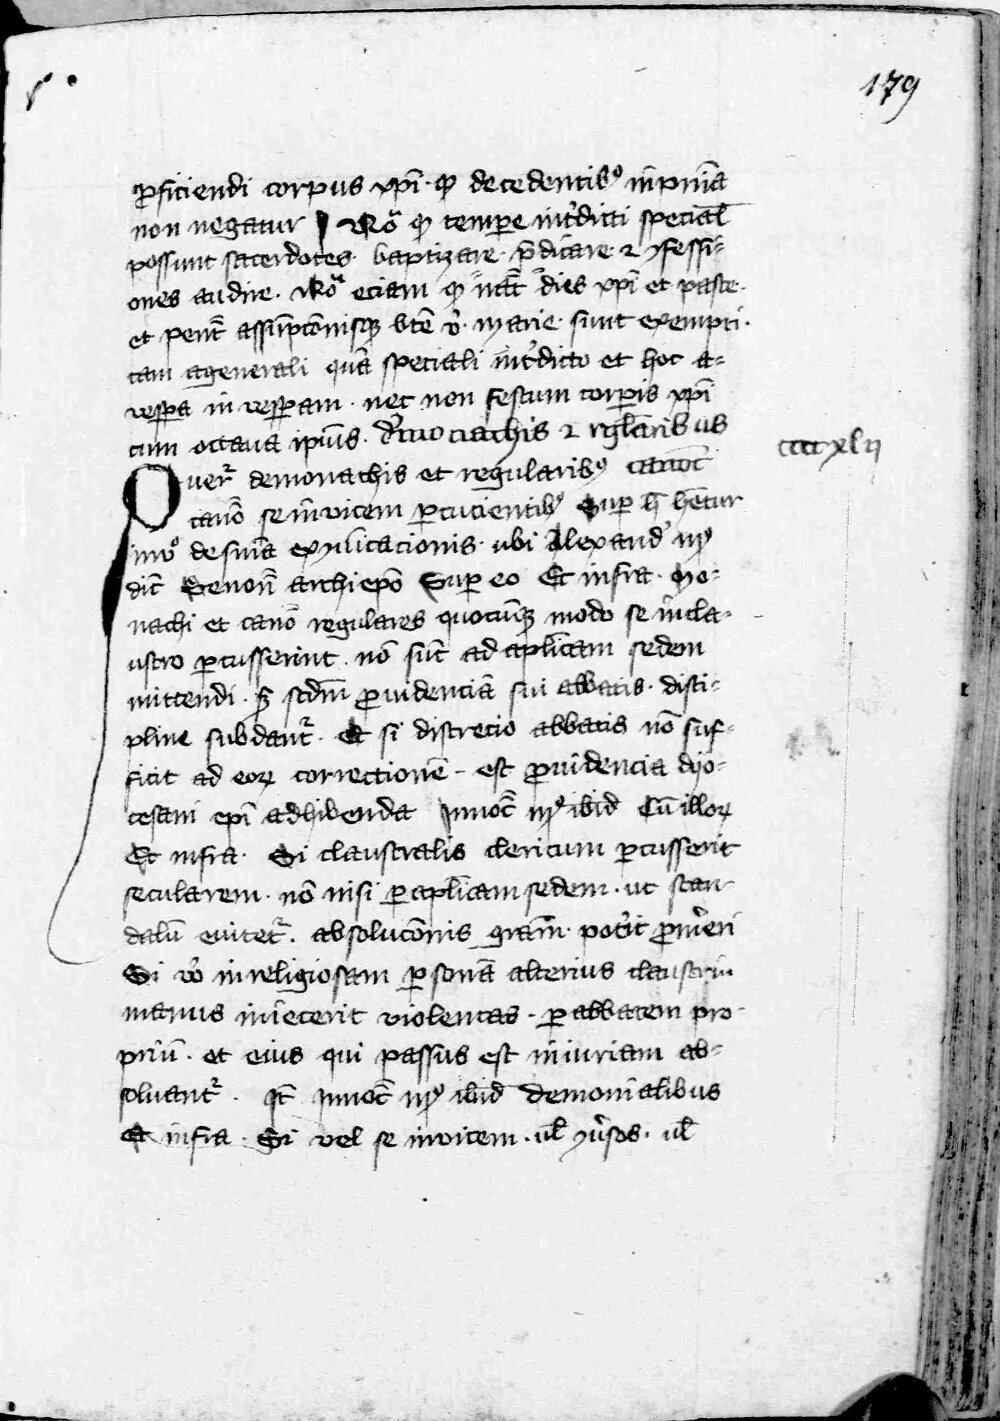 179
ꝑficiendi corpus xp̄i · qđ decedentibꝰ in pn̄ia
non negatur Nō qđ tempore int̓dicti special̄
possunt sacerdotes baptizare · p̄dicare · ⁊ ꝯfessi-
ones audire · Nō eciam qđ nat̄ dies xp̄i et pasce ·
et pent̄ assūpcōnisqꝫ bt̄e v̓ · marie · sunt exempti ·
tam a generali quā speciali int̓dicto et hoc a-
vesꝑa in vesꝑam · nec non festum corꝑis xp̄i
cum octaua ipīus · De monachis ⁊ rgl̄aribus
ccccxlij
Quer̄ de monachis et regularibꝰ canoc̄
canō se inuicem ꝑcucientibꝰ Suꝑ h̄ hētur
de snīa exꝯmūicacionis · ubi Alexand̓ iijꝰ
dic̄ Senon̄ archiepō Suꝑ eo Et infra · mo-
nachi et canō regulares quocūqꝫ modo se in cla-
ustro ꝑcusserint · nō sūt ad aplīcam sedem
mittendi · s̄ scdm̄ ꝓuidenciā sui abbatis · disci-
pline subdant̄ · Et si discrecio abbatis nō suf-
ficit ad eoꝝ correctionē · est ꝓuidencia dyo-
cesani ep̄i adhibenda Innoc̄ iijꝰ ibid Cū illoꝝ
Et infra · Si claustralis clericum ꝑcusserit
secularem · nō nisi ꝑ aplīcam sedem · ut scan-
dalū euitet̄ · absolucōnis grām · pot̓it ꝓm̓eri
Si v̓o in religiosam ꝑsonā alterius claustri
manus iniecerit violentas · ꝑ abbatem pro-
priū · et eius qui passus est iniuriam ab-
soluant̄ · It̄ Innoc̄ iijꝰ ibid de monialibus
Et infra · Si vel se inuicem · ul̄ ꝯu̓sos · ul̄